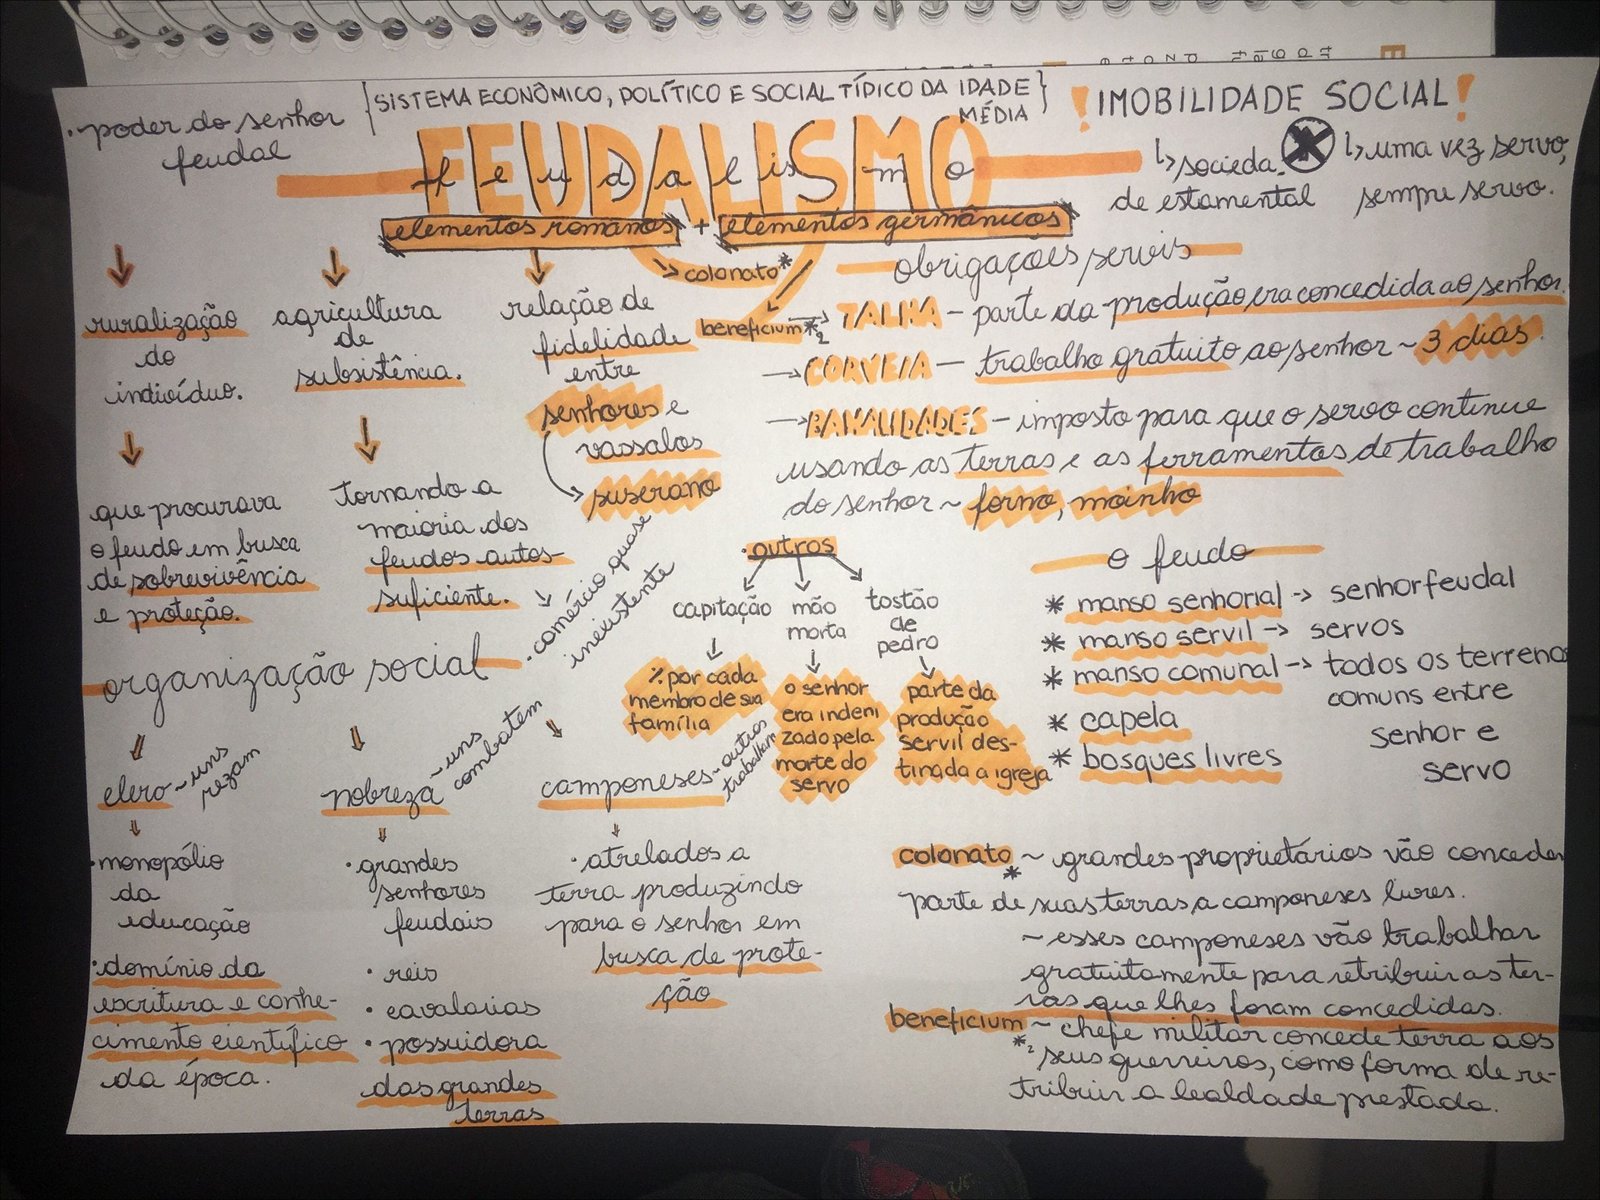 • poder do senhor
feudal
{SISTEMA ECONÔMICO, POLÍTICO E SOCIAL TÍPICO DA IDADE
MÉDIA}
FEUDALISMO
feudalismo
elementos romanos + elementos germânicos
! IMOBILIDADE SOCIAL !
↳ socieda-
de estamental
↳ uma vez servo,
sempre servo.
ruralização
do
indivíduo.
que procurava
o feudo em busca
de sobrevivência
e proteção.
agricultura
de
subsistência.
tornando a
maioria dos
feudos autos-
suficiente.
• comércio quase
inexistente
relação de
fidelidade
entre
senhores e
vassalos
suserano
→ colonato*
beneficium*2
obrigações servis
→ TALHA – parte da produção era concedida ao senhor.
→ CORVEIA – trabalho gratuito ao senhor ~ 3 dias.
→ BANALIDADES – imposto para que o servo continue
usando as terras e as ferramentas de trabalho
do senhor ~ forno, moinho
• outros
capitação
% por cada
membro de sua
família
mão
morta
o senhor
era indeni
zado pela
morte do
servo
tostão
de
pedro
parte da
produção
servil des-
tinada a igreja
o feudo
* manso senhorial → senhor feudal
* manso servil → servos
* manso comunal → todos os terrenos
comuns entre
senhor e
servo
* capela
* bosques livres
organização social
clero ~ uns
rezam
• monopólio
da
educação
• domínio da
escritura e conhe-
cimento científico
da época.
nobreza ~ uns
combatem
• grandes
senhores
feudais
• reis
• cavalarias
• possuidora
das grandes
terras
camponeses ~ outros
trabalham
• atrelados a
terra produzindo
para o senhor em
busca de prote-
ção
colonato* ~ grandes proprietários vão conceder
parte de suas terras a camponeses livres.
~ esses camponeses vão trabalhar
gratuitamente para retribuir as ter-
ras que lhes foram concedidas.
beneficium*2 ~ chefe militar concede terra aos
seus guerreiros, como forma de re-
tribuir a lealdade prestada.